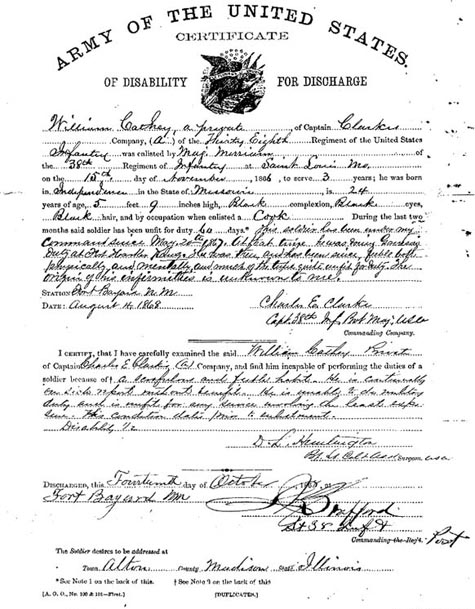 ARMY OF THE UNITED STATES.
CERTIFICATE
OF DISABILITY FOR DISCHARGE
William Cathey, a private of Captain Clarke's
Company, (A) of the Thirty Eighth Regiment of the United States
Infantry was enlisted by Maj. Merriam of
the 38th Regiment of Infantry at Saint Louis Mo.
on the 15th day of November 1866, to serve 3 years; he was born
in Independence in the State of Missouri, is 24
years of age, 5 feet 9 inches high, Black complexion, Black eyes,
Black hair, and by occupation when enlisted a Cook During the last two
months said soldier has been unfit for duty 60 days.* This soldier has been under my
command since May 20th 1867. at that time he was doing Garrison
Duty at Fort Harker Kans. he was then, and has been since, feeble both
physically and mentally, and much of the time quite unfit for duty. The
origin of his infirmities is unknown to me.
STATION: Fort Bayard N. M.
DATE: August 14 1868
Charles E. Clarke
Capt. 38th Inf. Bvt. Maj. USA
Commanding Company.
I CERTIFY, that I have carefully examined the said William Cathey Privat
of Captain Charles E. Clarke's Company, and find him incapable of performing the duties of a
soldier because of† a scrofulous and feeble habit. He is continually
on sick report without benefit. He is unable to do military
duty and is unfit for any
This condition dates prior to enlistment.
Disability 1/2
Surgeon, U.S.A.
DISCHARGED, this Fourteenth day of October 1868, at
Fort Bayard NM
Commanding the Reg't. Post
The Soldier desires to be addressed at
Town Alton County Madison State Illinois
*See Note 1 on the back of this. † See Note 2 on the back of this.
[A. G. O., No. 100 & 101—First.] [DUPLICATES.]